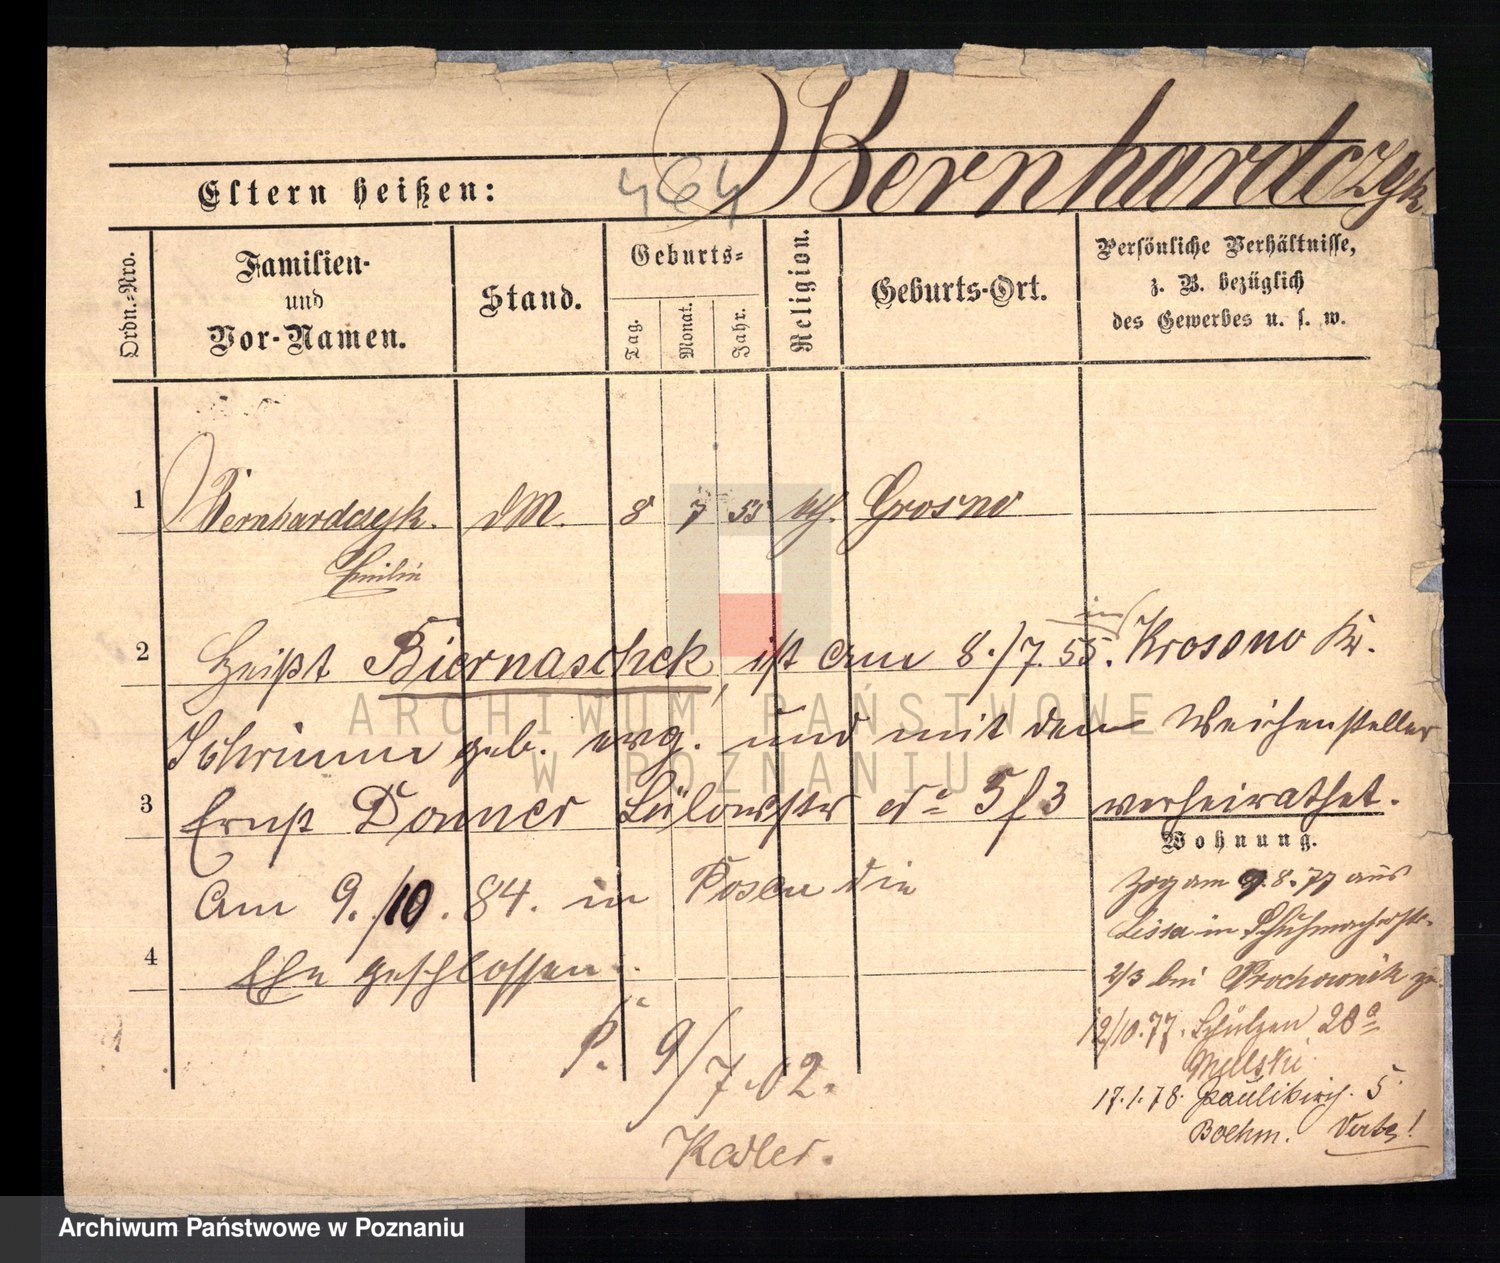 Bernhardczyk
Eltern heißen:
464
Ordn.-Nro.
Familien-
und
Vor-Namen.
Stand.
Geburts-
Tag.
Monat.
Jahr.
Religion.
Geburts-Ort.
Persönliche Verhältnisse,
z. B. bezüglich
des Gewerbes u. s. w.
1 Bernhardczyk. dM. 8 7 55 kth. Grosno
Emilie
2 heißt Biernaschek, ist am 8./7. 55. in Krosono Kr.
Schrimm geb. evg. und mit dem Weichensteller
3 Ernst Donner Bülowstr No 5 f 3 verheirathet.
Wohnung.
Am 9./10. 84. in Posen die
4 Ehe geschlossen.
P. 9/7.02.
Kadler.
Zog am 9.8.77 aus
Lissa in Schuhmacherstr.
2/3 bei Prochownik zu.
12/10.77. Schützen 20a
Mellski
17.1.78. Paulikirch. 5
Boehm.
ARCHIWUM PAŃSTWOWE
W POZNANIU
Archiwum Państwowe w Poznaniu